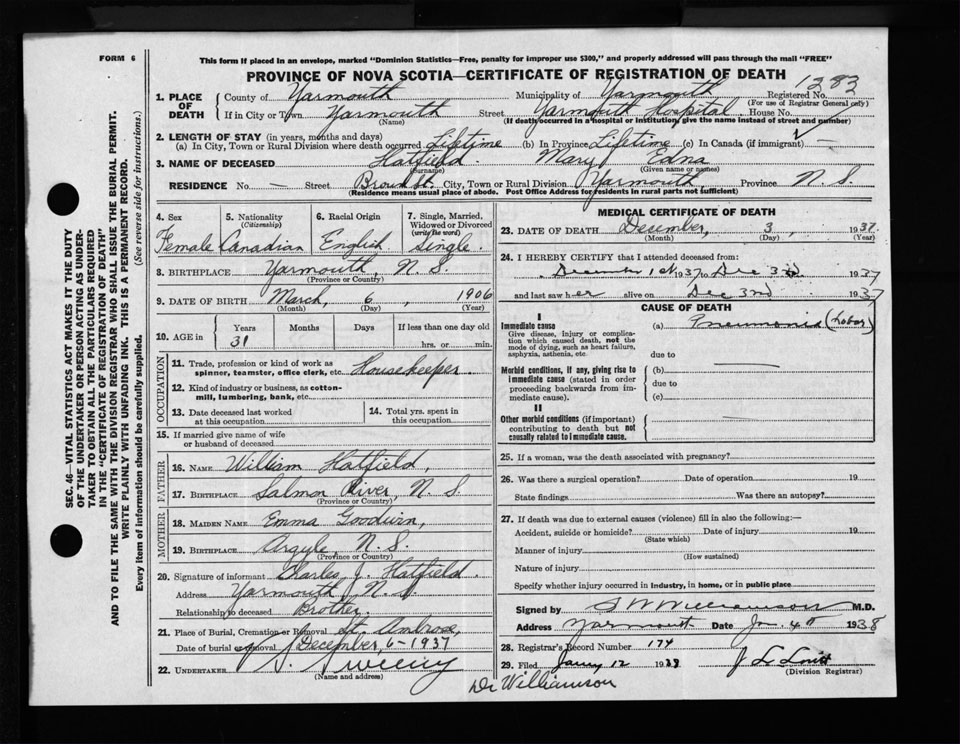 FORM 6
This form if placed in an envelope, marked "Dominion Statistics—Free, penalty for improper use $300," and properly addressed will pass through the mail "FREE"
PROVINCE OF NOVA SCOTIA—CERTIFICATE OF REGISTRATION OF DEATH
1282
1. PLACE OF DEATH
County of Yarmouth Municipality of Yarmouth Registered No.
(For use of Registrar General only)
If in City or Town Yarmouth Street Yarmouth Hospital House No.
(Name) (If death occurred in a hospital or institution, give the name instead of street and number)
2. LENGTH OF STAY (in years, months and days)
(a) In City, Town or Rural Division where death occurred Lifetime (b) In Province Lifetime (c) In Canada (if immigrant) —
3. NAME OF DECEASED Hatfield. Mary Edna
(Surname) (Given name or names)
RESIDENCE No. — Street Brown St. City, Town or Rural Division Yarmouth, Province N. S.
(Residence means usual place of abode. Post Office Address for residents in rural parts not sufficient)
4. Sex
Female
5. Nationality (Citizenship)
Canadian
6. Racial Origin
English
7. Single, Married, Widowed or Divorced (write the word)
Single.
8. BIRTHPLACE Yarmouth, N. S.
(Province or Country)
9. DATE OF BIRTH March, 6, 1906
(Month) (Day) (Year)
10. AGE in Years Months Days If less than one day old
31 hrs. or min.
OCCUPATION
11. Trade, profession or kind of work as spinner, teamster, office clerk, etc. Housekeeper.
12. Kind of industry or business, as cotton-mill, lumbering, bank, etc.
13. Date deceased last worked at this occupation
14. Total yrs. spent in this occupation
15. If married give name of wife or husband of deceased
FATHER
16. NAME William Hatfield,
17. BIRTHPLACE Salmon River, N. S.
(Province or Country)
MOTHER
18. MAIDEN NAME Emma Goodwin,
19. BIRTHPLACE Argyle, N. S.
(Province or Country)
20. Signature of informant Charles J. Hatfield.
Address Yarmouth, N. S.
Relationship to deceased Brother.
21. Place of Burial, Cremation or Removal St. Ambrose,
Date of burial or removal December, 6-1937
22. UNDERTAKER Sweeny
(Name and address)
MEDICAL CERTIFICATE OF DEATH
23. DATE OF DEATH December, 3, 1937.
(Month) (Day) (Year)
24. I HEREBY CERTIFY that I attended deceased from:
December 1st 1937 to Dec 3rd 1937
and last saw her alive on Dec 3rd 1937
CAUSE OF DEATH
I
Immediate cause
Give disease, injury or complication which caused death, not the mode of dying, such as heart failure, asphyxia, asthenia, etc
(a) Pneumonia (Lobar)
due to
Morbid conditions, if any, giving rise to immediate cause (stated in order proceeding backwards from immediate cause).
(b) —
due to
(c)
II
Other morbid conditions (if important) contributing to death but not causally related to immediate cause.
25. If a woman, was the death associated with pregnancy?
26. Was there a surgical operation? Date of operation 19
State findings Was there an autopsy?
27. If death was due to external causes (violence) fill in also the following:—
Accident, suicide or homicide? Date of injury 19
(State which)
Manner of injury
(How sustained)
Nature of injury
Specify whether injury occurred in industry, in home, or in public place
Signed by S W Williamson M.D.
Address Yarmouth Date Jan. 4th 1938
28. Registrar's Record Number 174
29. Filed 12 1938
(Division Registrar)
Dr Williamson
SEC. 46—VITAL STATISTICS ACT MAKES IT THE DUTY
OF THE UNDERTAKER OR PERSON ACTING AS UNDER-
TAKER TO OBTAIN ALL THE PARTICULARS REQUIRED
IN THE "CERTIFICATE OF REGISTRATION OF DEATH"
AND TO FILE THE SAME WITH THE DIVISION REGISTRAR WHO SHALL ISSUE THE BURIAL PERMIT.
WRITE PLAINLY WITH UNFADING INK. THIS IS A PERMANENT RECORD.
Every item of information should be carefully supplied. (See reverse side for instructions.)